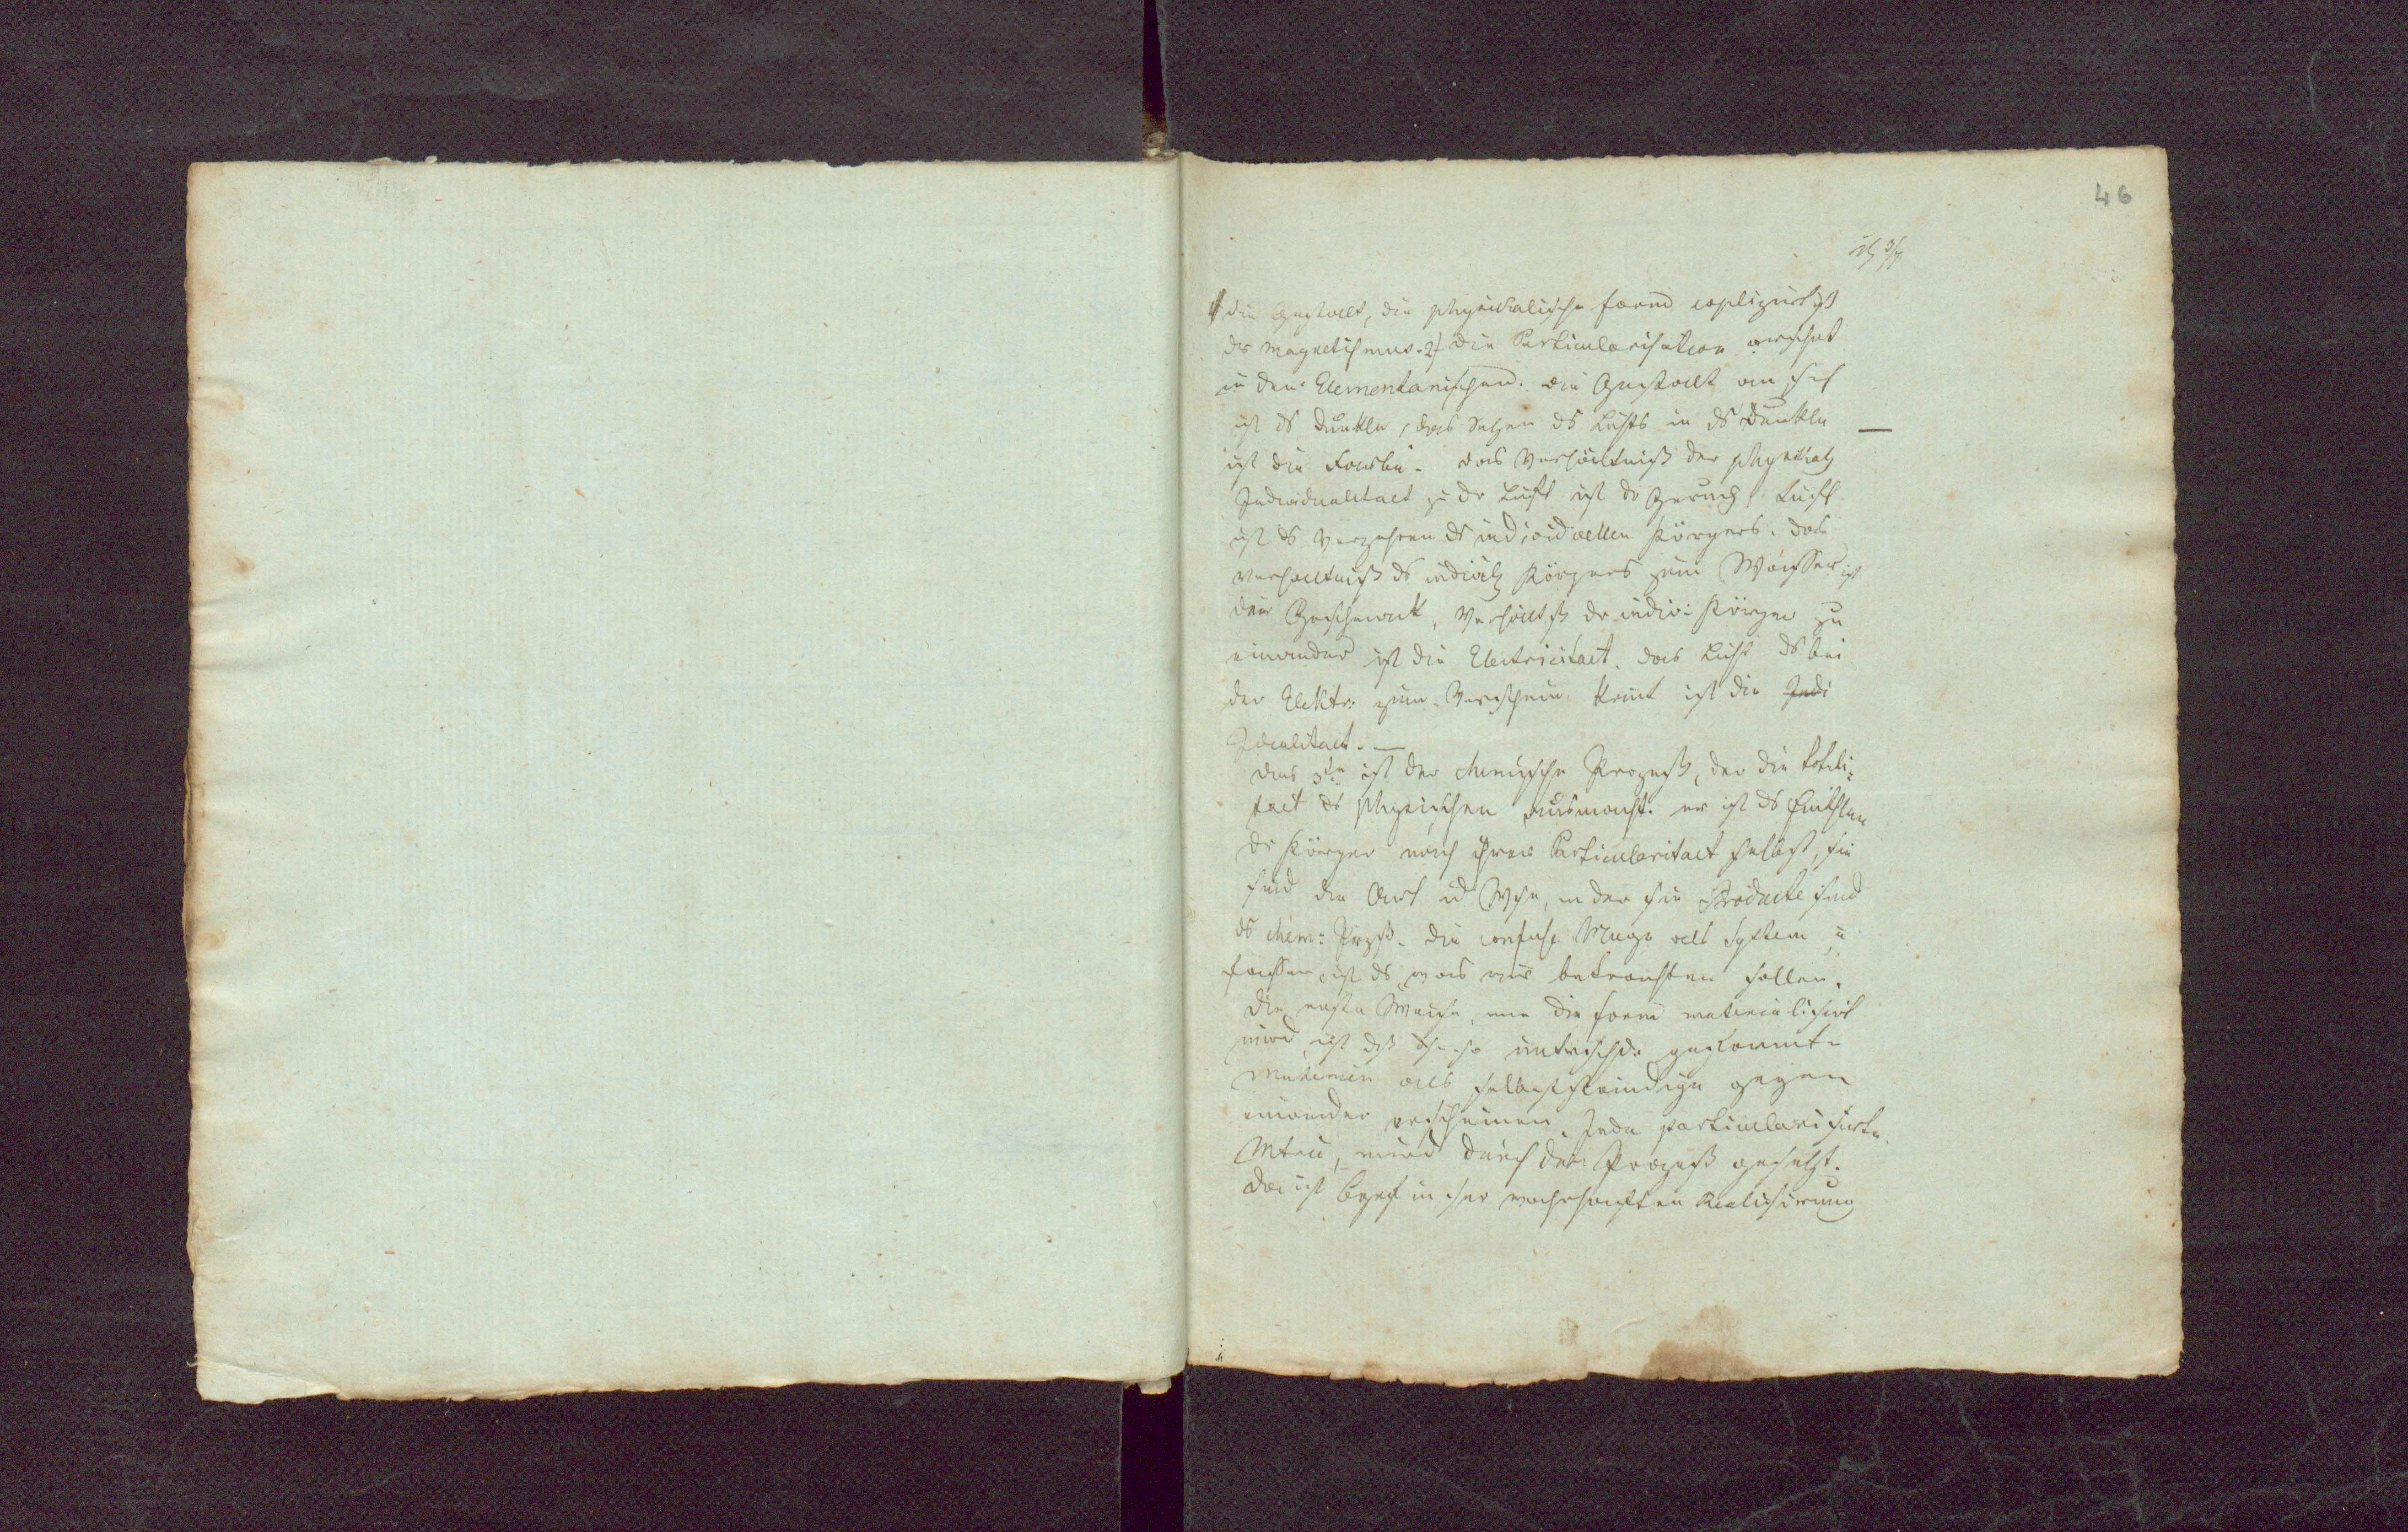 46
die Gestalt, die physikalische Form explizirt ist
der Magnetismus. 2) die Particularisation
in den Elementarischen. die Gestalt an sich
ist ds Dunkle, das Setzen ds Lichts in ds Dunkle —
ist die Farbe. das Verhältniß der physikal
Individualitaet zu dr Luft ist dr Geruch, Luft
ist ds Verzehren ds individuellen Körpers. das
Verhaltniß ds individ Körpers zum Wasser ist
der Geschmak, Verhältß dr indiv: Körper zu
einander ist die Electricitaet. das Licht ds bei
der Elektr: zum Vorschein komt ist die Indi
Idealitaet. —
das 3te ist der chemische Prozeß, der die Totali-
taet ds physischen ausmacht. er ist ds Entstehen
dr Körper nach ihrer Particularitaet selbst, sie
sind die Art ud Wse, in der sie Producte sind
ds chem: Przß. die confuse Menge als System zu
fassen, ist ds was wir betrachten sollen.
die erste Weise, wie die Form materialisirt
wird, ist dß untrschd: genannte
Materien als selbstständige gegen
einander erscheinen. Jede particularisirte
Mterie, wird durch den Prozeß gesetzt.
da ist Begrif in sr wahrhaften Realisirung